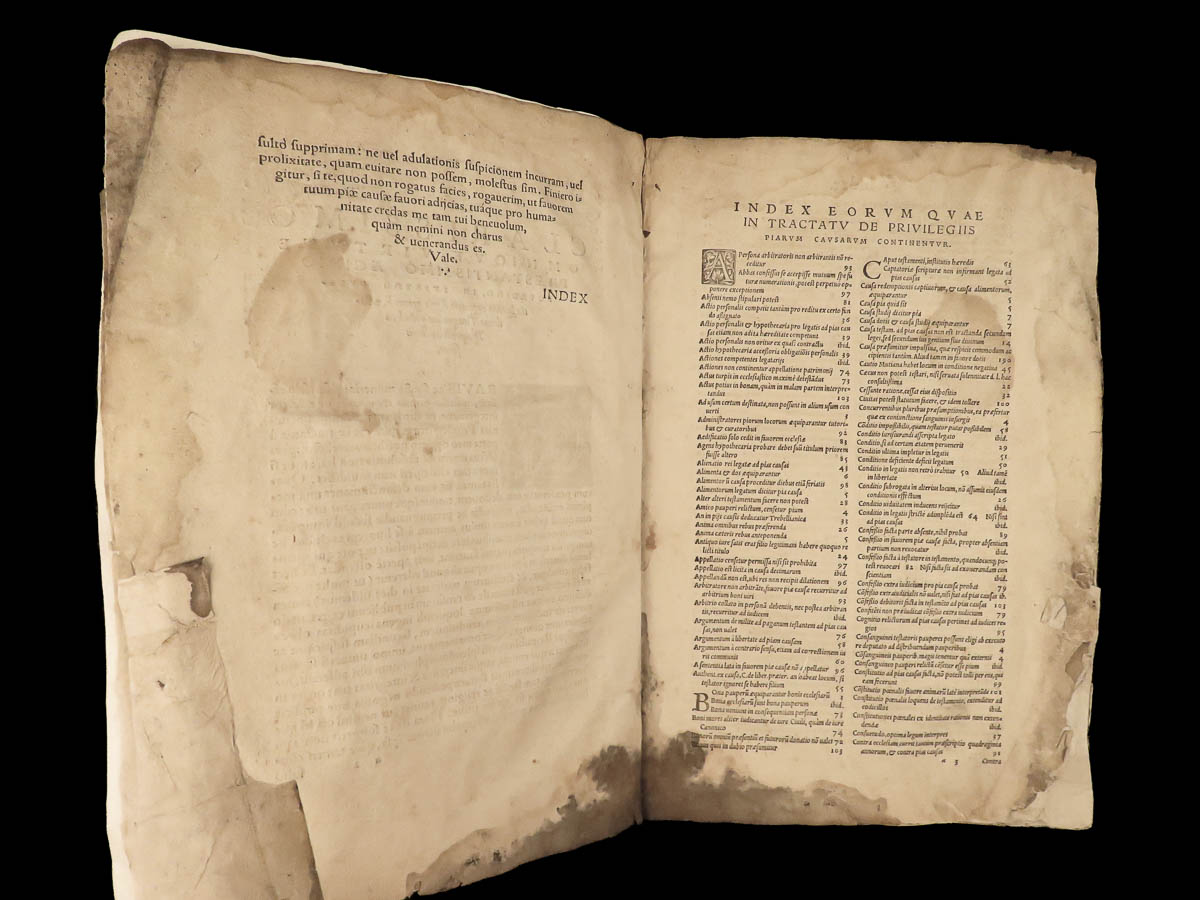 sultò supprimam: ne uel adulationis suspicionem incurram, uel
prolixitate, quam euitare non possem, molestus sim. Finiero i-
gitur, si te, quod non rogatus facies, rogauerim, ut fauorem
tuum piæ causæ fauori adijcias, tuáque pro huma-
nitate credas me tam tui beneuolum,
quàm nemini non charus
& uenerandus es.
Vale.
INDEX
INDEX EORVM QVAE
IN TRACTATV DE PRIVILEGIIS
PIARVM CAVSARVM CONTINENTVR.
A Persona arbitratoris non arbitrantis nō re-
ceditur 93
Abbas confessus se accepisse mutuum spe fu
turæ numerationis, potest perpetuo op-
ponere exceptionem 97
Absenti nemo stipulari potest 81
Actio personalis competit tantùm pro reditu ex certo fun
do assignato 36
Actio personalis & hypothecaria pro legatis ad pias cau
sas etiam non adita hæreditate competunt 39
Actio personalis non oritur ex quasi contractu ibid.
Actio hypothecaria accessoria obligationis personalis 39
Actiones competentes legatarijs ibid.
Actiones non continentur appellatione patrimonij 74
Actus turpis in ecclesiastico maximè detestādus 73
Actus potius in bonam, quàm in malam partem interpre-
tandus 103
Ad usum certum destinata, non possunt in alium usum con
uerti 3
Administratores piorum locorum æquiparantur tutori-
bus & curatoribus 92
Aedificatio solo cedit in fauorem ecclesiæ 88
Agens hypothecaria probare debet suū titulum priorem
fuisse altero 85
Alienatio rei legatæ ad pias causas 43
Alimenta & dos æquiparantur 6
Alimentorū causa proceditur diebus etiā feriatis 98
Alimentorum legatum dicitur pia causa 5
Alter alteri testamentum facere non potest 28
Amico pauperi relictum, censetur pium 4
An in pijs causis deducatur Trebellianica 33
Anima omnibus rebus præferenda 26
Anima cæteris rebus anteponenda 5
Antiquo iure satis erat filio legitimam habere quoquo re
licti titulo 24
Appellatio censetur permissa nisi sit prohibita 97
Appellatio est licita in causa decimarum ibid.
Appellandū non est, ubi res non recipit dilationem 96
Arbitratore non arbitrāte, fauore piæ causæ recurritur ad
arbitrium boni uiri 93
Arbitrio collato in personā debentis, nec postea arbitran
tis, recurritur ad iudicem ibid.
Argumentum de milite ad paganum testantem ad pias cau
sas, non ualet 76
Argumentum à libertate ad piam causam 58
Argumentum à contrario sensu, etiam ad correctionem iu
ris communis 60
A sententia lata in fauorem piæ causæ nō appellatur 96
Authent. ex causa, C. de liber. præter. an habeat locum, si
testator ignoret se habere filium 55
BOna pauperū æquiparantur bonis ecclesiarū 3
Bona ecclesiarū sunt bona pauperum ibid.
Bona ueniunt in consequentiam personæ 73
Boni mores aliter iudicantur de iure Ciuili, quàm de iure
Canonico 74
Bonorū omniū præsentiū et futurorū donatio nō ualet 72
quis in dubio præsumitur 103
CAput testamenti, institutio hæredis 63
Captatoriæ scripturæ non infirmant legata ad
pias causas 52
Causa redemptionis captiuorum, & causa alimentorum,
æquiparantur 5
Causa pia quid sit 5
Causa studij dicitur pia 7
Causa dotis & causa studij æquiparantur 7
Causa testam. ad pias causas non est tractanda secundum
leges, sed secundum ius gentium siue diuinum 14
Causa præsumitur impulsiua, quæ respicit commodum ac
cipientis tantùm. Aliud tamen in fauore dotis 190
Cautio Mutiana habet locum in conditione negatiua 45
Cæcus non potest testari, nisi seruata solennitate d. l. hac
consultissima 22
Cessante ratione, cessat eius dispositio 32
Ciuitas potest statutum facere, & idem tollere 100
Concurrentibus pluribus præsumptionibus, ea præfertur
quæ ex coniunctione sanguinis insurgit 4
Cōditio impossibilis, quam testator putat possibilem 58
Conditio iurisiurandi ascripta legato ibid.
Conditio, si ad certam ætatem peruenerit 29
Conditio ultima impletur in legatis 51
Conditione deficiente deficit legatum 50
Conditio in legatis non retrò trahitur 50 Aliud tamē
in libertate ibid.
Conditio subrogata in alterius locum, nō assumit eiusdem
conditionis effectum 26
Conditio uiduitatem inducens reijcitur ibid.
Conditio in legatis strictè adimplēda est 64 Nisi sint
ad pias causas ibid.
Confessio facta parte absente, nihil probat 89
Confessio in fauorem piæ causæ facta, propter absentiam
partium non reuocatur ibid.
Confessio facta à testatore in testamento, quandocunq; po-
test reuocari 82 Nisi facta sit ad exonerandam con
scientiam ibid.
Confessio extra iudicium pro pia causa probat 79
Cōfessio extraiudicialis nō ualet, nisi fiat ad pias causas ib.
Cōfessio debitoris facta in testamēto ad pias causas 103
Confitēti non præiudicat cōfessio extra iudicium 79
Cognitio relictorum ad pias causas pertinet ad iudices re-
gios 95
Consanguinei testatoris pauperes possunt eligi ab executo
re deputato ad distribuendum pauperibus 4
Cōsanguineis pauperib. magis tenentur quā externis 4
Consanguineo pauperi relictū cēsetur esse pium ibid.
Constitutio ad pias causas facta, nō potest tolli per eos, qui
eam fecerunt 99
Cōstitutio pœnalis fauore animarū latè interpretāda 101
Constitutio pœnalis loquens de testamento, extenditur ad
codicillos ibid.
Constitutiones pœnales ex identitate rationis non exten-
dendæ ibid.
Consuetudo, optima legum interpres 37
Contra ecclesiam currit tantùm præscriptio quadraginta
annorum, & contra pias causas 92
a 3 Contra